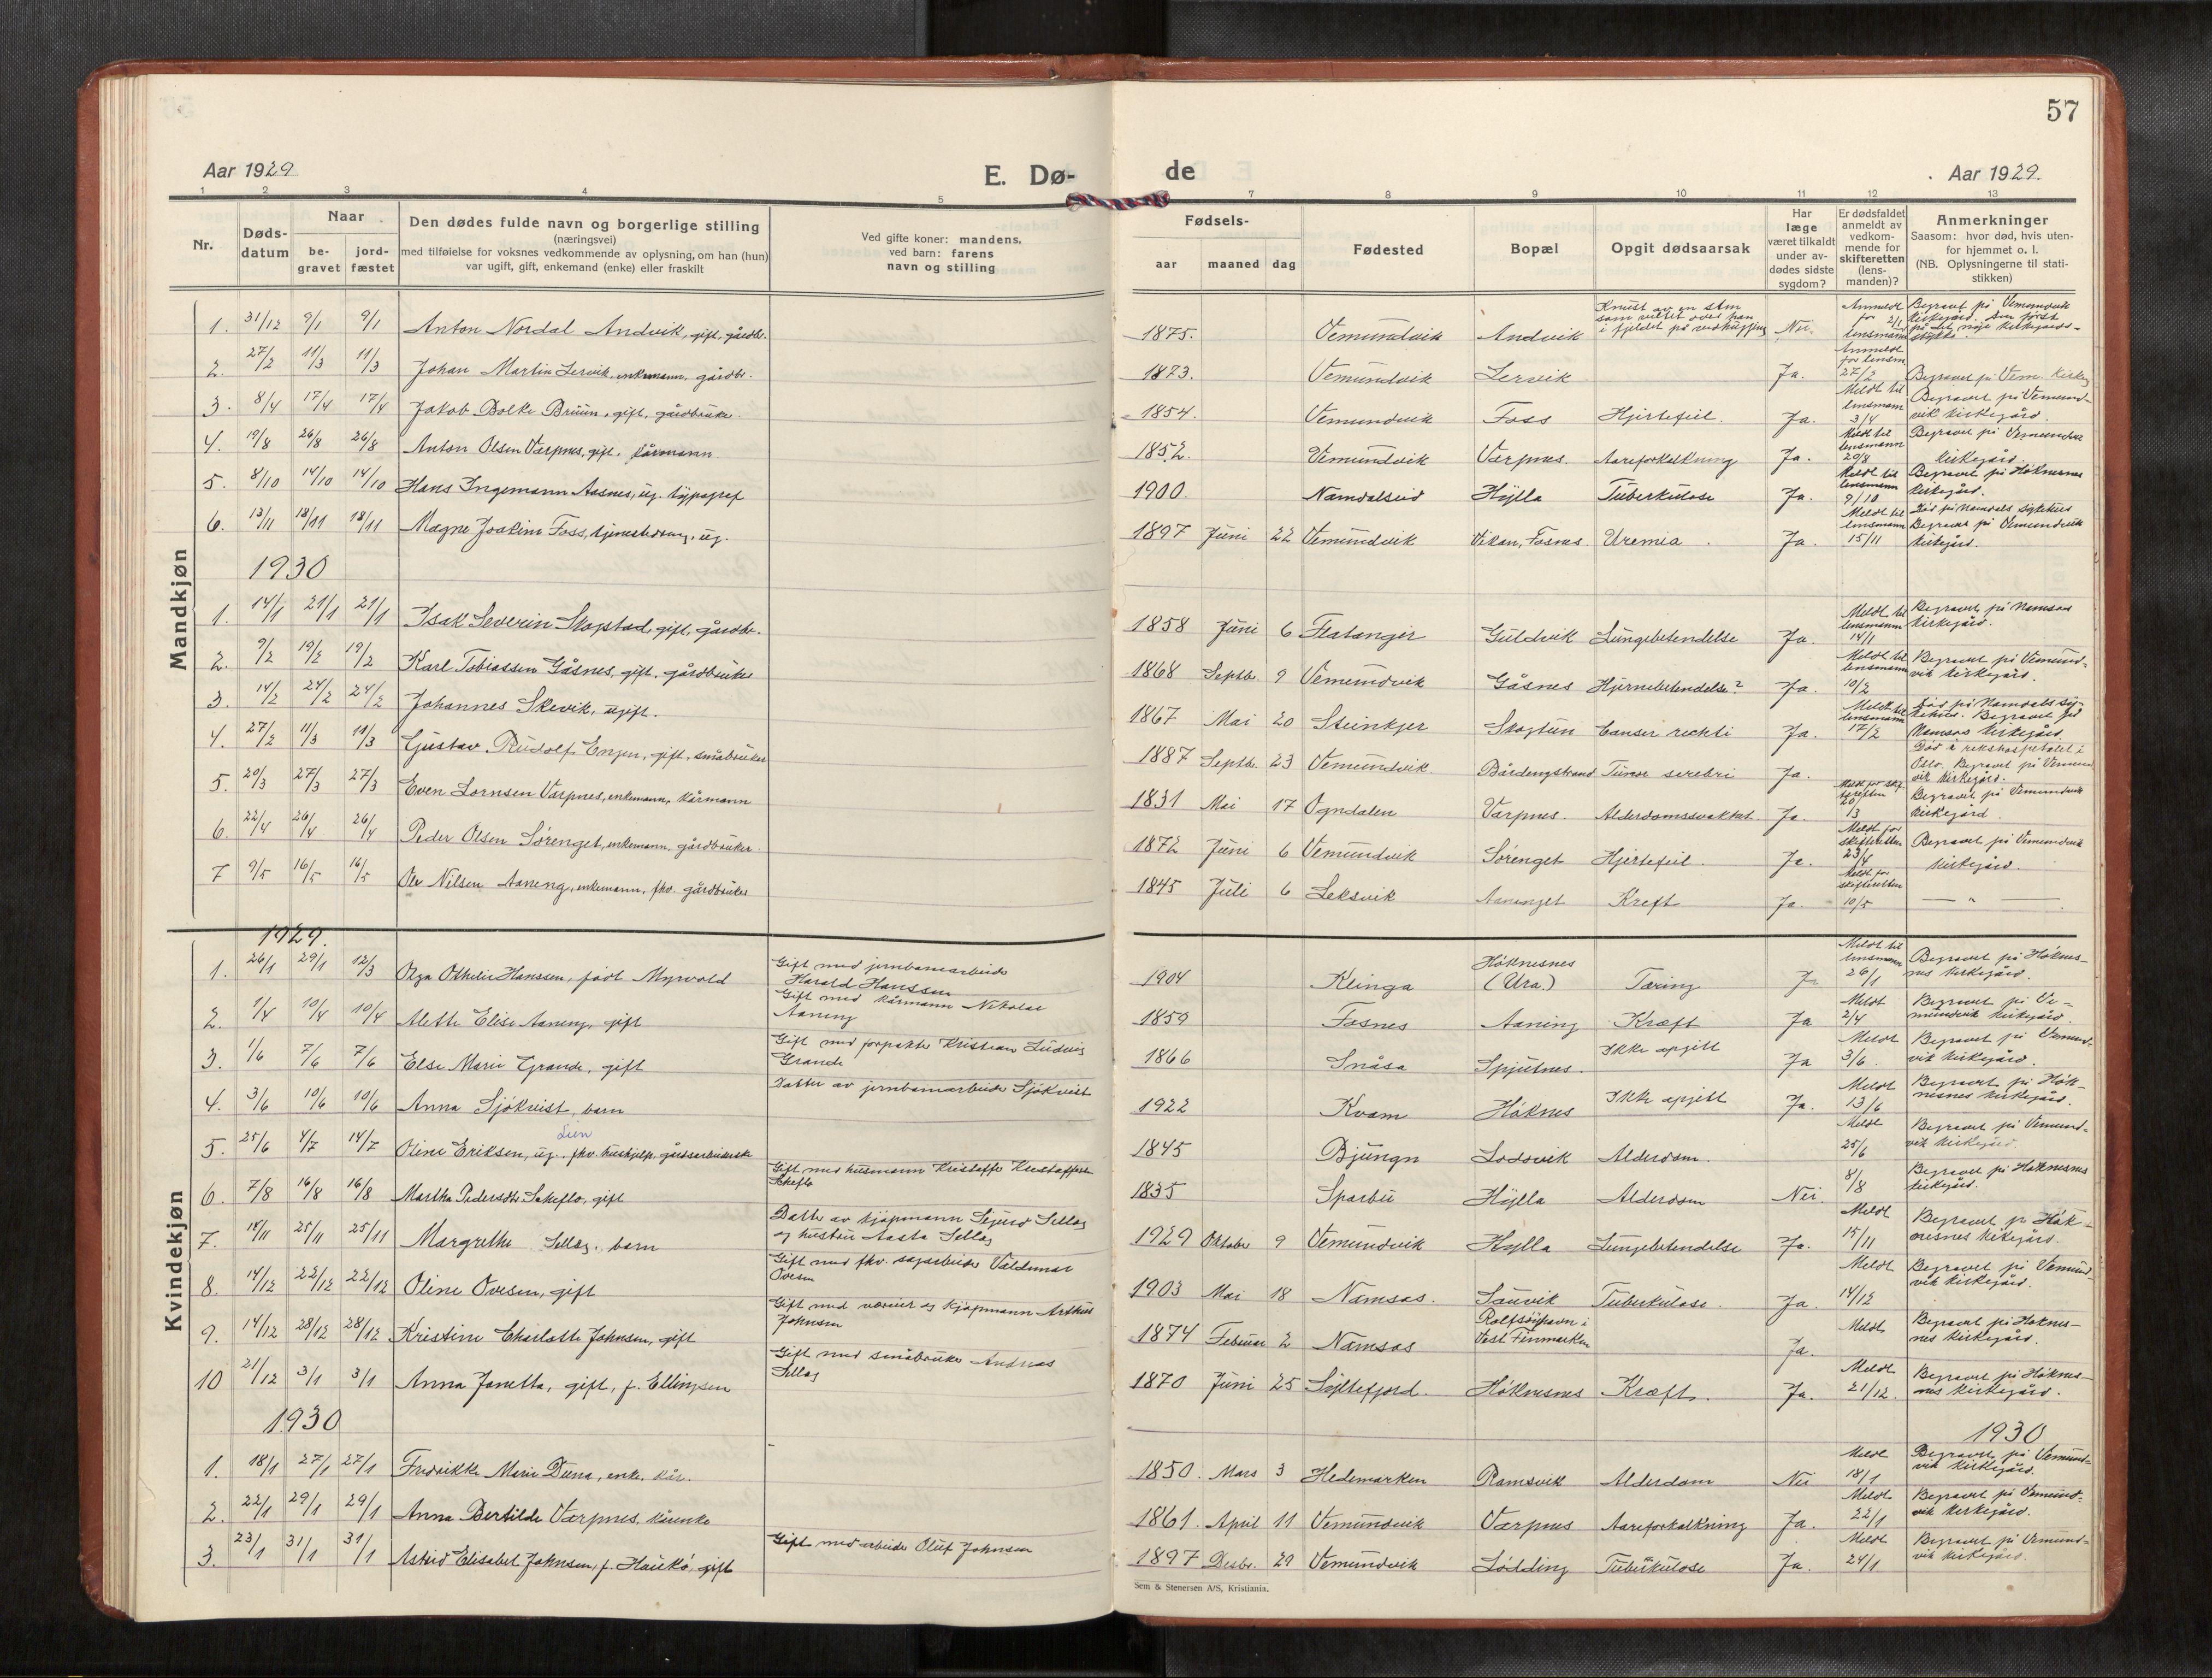 57
Aar 1929
E. Dø-
de
Aar 1929.
1 2 3 4 5 7 8 9 10 11 12 13
Nr.
Døds-
datum
Naar
be-
gravet
jord-
fæstet
Den dødes fulde navn og borgerlige stilling
(næringsvei)
med tilføielse for voksnes vedkommende av oplysning, om han (hun)
var ugift, gift, enkemand (enke) eller fraskilt
Ved gifte koner: mandens,
ved barn: farens
navn og stilling
Fødsels-
aar maaned dag
Fødested
Bopæl
Opgit dødsaarsak
Har
læge
været tilkaldt
under av-
dødes sidste
sygdom?
Er dødsfaldet
anmeldt av
vedkom-
mende for
skifteretten
(lens-
manden)?
Anmerkninger
Saasom: hvor død, hvis uten-
for hjemmet o. l.
(NB. Oplysningerne til stati-
stikken)
Mandkjøn
1. 31/12 9/1 9/1 Anton Nordal Andvik, gift, gårdbr. 1875. Vemundvik Andvik Knust av en sten som veltet over han i fjeldet på vedhugging Nei. Anmeldt for lensmann 2/1 Begravet på Vemundvik kirkegård. Den først på det nye kirkegårds-stykke.
2. 27/2 11/3 11/3 Johan Martin Lervik, enkemann, gårdbr. 1873. Vemundvik Lervik Ja. Anmeldt for lensm 27/2 Begravet på Vem. kirkeg
3. 8/4 17/4 17/4 Jakob Bolke Bruun, gift, gårdbruker 1854. Vemundvik Foss Hjertefeil. Ja. Meldt til lensmann 3/4 Begravet på Vemund-vik kirkegård.
4. 19/8 26/8 26/8 Anton Olsen Varpnes, gift, kårmann 1852. Vemundvik Varpnes. Aareforkalkning Ja. Meldt til lensmann 20/8 Begravet på Vemundvik kirkegård.
5. 8/10 14/10 14/10 Hans Ingemann Aasnes, ug. typograf 1900. Namdalseid Hylla Tuberkulose Ja. Meldt til lensmann 9/10 Begravet på Høknesnes kirkegård.
6. 13/11 18/11 18/11 Magne Joakim Foss, tjenestedreng, ug. 1897 Juni 22 Vemundvik Vikan, Fosnes. Uremia. Ja. Meldt til lensmann 15/11 Død på Namdals sykehus Begravet på Vemundvik kirkegård.
1930
1. 14/1 21/1 21/1 Isak Severin Skogstad, gift, gårdbr. 1858 Juni 6 Flatanger Guldvik Lungebetendelse Ja. Meldt til lensmann 14/1 Begravet på Namsos kirkegård.
2. 9/2 19/2 19/2 Karl Tobiassen Gåsnes, gift, gårdbruker 1868 Septbr. 9 Vemundvik Gåsnes Hjernebetendelse? Ja. Meldt til lensmann 10/2 Begravet på Vemund-vik kirkegård.
3. 14/2 24/2 24/2 Johannes Skevik, ugift. 1867 Mai 20 Steinkjer Skogtun Canser reckti Ja. Meldt til lensmann 17/2 Død på Namdals sy-kehus. Begravet på Namsos kirkegård.
4. 27/2 11/3 11/3 Gustav Rudolf Engen, gift, småbruker 1887 Septbr. 23 Vemundvik Bårdengstrand Tumor serebri Ja. Død i rikshospitalet i Oslo. Begravet på Vemund vik kirkegård.
5. 20/3 27/3 27/3 Even Lornsen Varpnes, enkemann, kårmann 1831 Mai 17 Ogndalen Varpnes. Alderdomssvakhet Ja. Meldt for skifteretten 20/3 Begravet på Vemundvik kirkegård.
6. 22/4 26/4 26/4 Peder Olsen Sørenget, enkemann, gårdbruker. 1872 Juni 6 Vemundvik Sørenget Hjertefeil. Ja. Meldt for skifteretten 23/4 Begravet på Vemundvik kirkegård.
7 9/5 16/5 16/5 Ole Nilsen Aaneng, enkemann, fhv. gårdbruker 1845 Juli 6 Leksvik Aaninget Kreft Ja. Meldt for skifteretten 10/5 — " —
Kvindekjøn
1929.
1. 26/1 29/1 12/3 Olga Othelie Hanssen, født Myrvold Gift med jernbanearbeider Harald Hanssen 1904 Klinga Høknesnes (Ura.) Tæring Ja Meldt til lensmann 26/1 Begravet på Høknes-nes kirkegård.
2. 1/4 10/4 10/4 Alette Elise Aaneng, gift Gift med kårmann Nikolai Aaneng 1859 Fosnes Aaning Kræft Ja Meldt 2/4 Begravet på Ve-mundvik kirkegård.
3. 1/6 7/6 7/6 Else Marie Grande, gift Gift med forpakter Kristian Ludvig Grande 1866 Snåsa Spjutnes. Ikke opgitt Ja Meldt 3/6 Begravet på Vemund-vik kirkegård.
4. 3/6 10/6 10/6 Anna Sjøkvist, barn Datter av jernbanearbeider Sjøkvist 1922 Kvam Høknes Ikke opgitt Ja. Meldt 13/6 Begravet på Høk-nesnes kirkegård.
5. 25/6 4/7 14/7 Oline Eriksen, Lien ug. fhv. hushjelp, gårdsarbeiderske 1845 Bjungn Lodovik Alderdom. Meldt 25/6 Begravet på Vemund-vik kirkegård.
6. 7/8 16/8 16/8 Martha Pedersdtr. Sakeflo, gift Gift med husmann Kristoffer Kristoffersen 1835 Sparbu Hylla Alderdom Nei. 8/8 Begravet på Høknesnes kirkegård.
7. 14/11 25/11 25/11 Margrethe Sellæg, barn Datter av kjøpmann Sigurd Sellæg og hustru Aasta Sellæg 1929 Oktober 9 Vemundvik Hylla Lungebetendelse Ja. Meldt 15/11 Begravet på Høk-nesnes kirkegård.
8. 14/12 22/12 22/12 Oline Ovesen, gift Gift med fhv. sagarbeider Valdemar Ovesen 1903 Mai 18 Namsos. Sauvik Tuberkulose. Ja. Meldt 14/12 Begravet på Vemund-vik kirkegård.
9. 14/12 28/12 28/12 Kristine Charlotte Johnsen, gift Gift med væreier og kjøpmann Arthur Johnsen 1874 Februar 2 Namsos Rolfsøyhavn i Vest Finmarken Ja. Meldt Begravet på Høknes-nes kirkegård.
10 21/12 3/1 3/1 Anna Janetta, gift, f. Ellingsen Gift med småbruker Andreas Sellæg 1870 Juni 25 Syltefjord. Høknesnes Kræft. Ja. Meldt 21/12. Begravet på Høknes-nes kirkegård.
1930 1930
1. 18/1 27/1 27/1 Fredrikke Marie Duna, enke, kår. 1850. Mars 3 Hedemarken Ramsvik Alderdom Nei Meldt 18/1 Begravet på Vemund-vik kirkegård.
2. 22/1 29/1 29/1 Anna Bertilde Varpnes, kårenke 1861. April 11 Vemundvik Varpnes Aareforkalkning Ja. Meldt 22/1 Begravet på Vemund-vik kirkegård.
3. 23/1 31/1 31/1 Astrid Elisabet Johnsen, f. Haukø, gift Gift med arbeider Oluf Johnsen 1897 Desbr. 29 Vemundvik Lødding Tuberkulose Ja. Meldt 24/1 Begravet på Vemund-vik kirkegård.
Sem & Stenersen A/S, Kristiania.